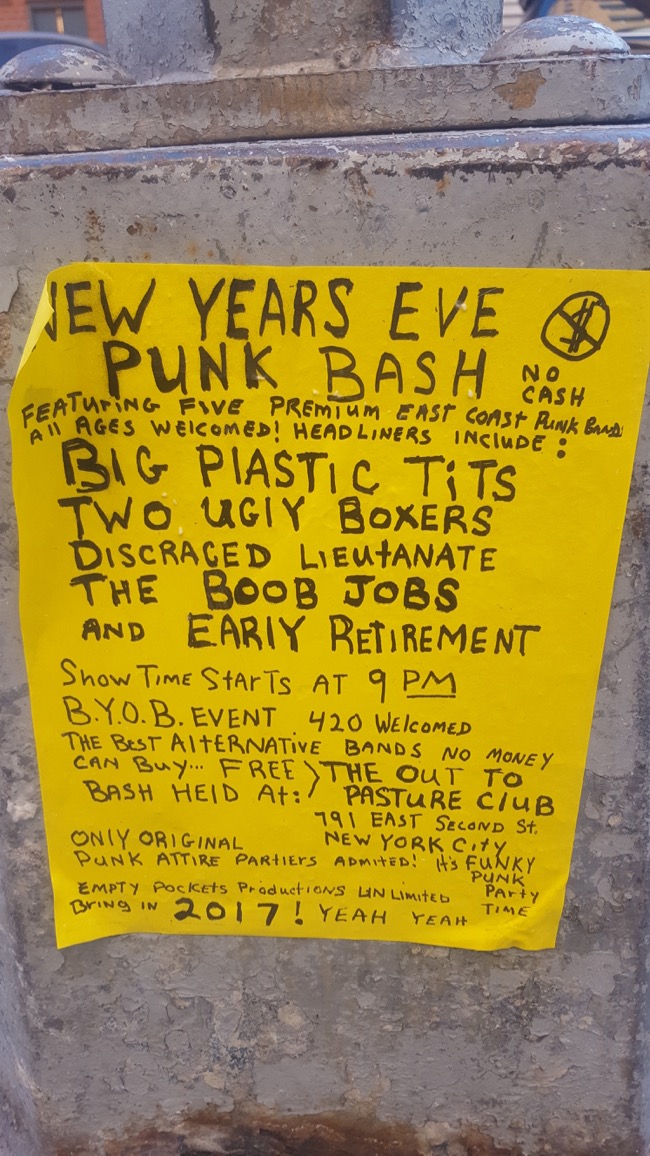 NEW YEARS EVE
PUNK BASH
NO
CASH
FEATURING FIVE PREMIUM EAST COAST PUNK BANDS
All AGES WELCOMED! HEADLINERS INCLUDE:
BIG PlASTIC TiTS
TWO UGlY BOXERS
DISCRACED LIEUtANATE
THE BOOB JOBS
AND EARlY RETIREMENT
Show TIME STARTS AT 9 PM
B.Y.O.B. EVENT 420 WELCOMED
THE BEST AlTERNATIVE BANDS NO MONEY
CAN BUY... FREE THE OUT TO
BASH HElD At: PASTURE ClUB
791 EAST SECOND St.
ONlY ORIGINAL NEW YORK CiTY
PUNK ATTIRE PARTIERS ADMITED! It's FUNKY
PUNK
EMPTY POCKETS PRODUCTIONS UNLIMITED PARTY
BRING IN 2017! YEAH YEAH TIME